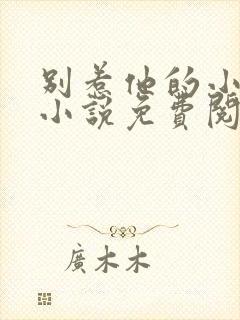 别惹他的小
小說免費閱
廣木木